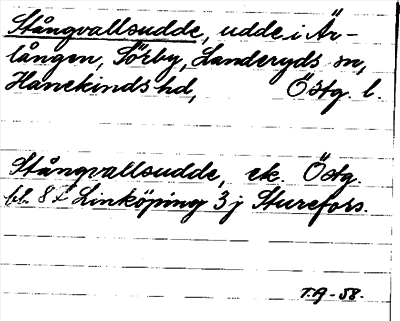 Stångvallsudde, udde i Är-
lången, Sörby, Landeryds sn,
Hanekinds hd, Östg. l.
Stångvallsudde, ek. Östg.
bl. 8 Linköping 3 j Sturefors.
T.A - 58.